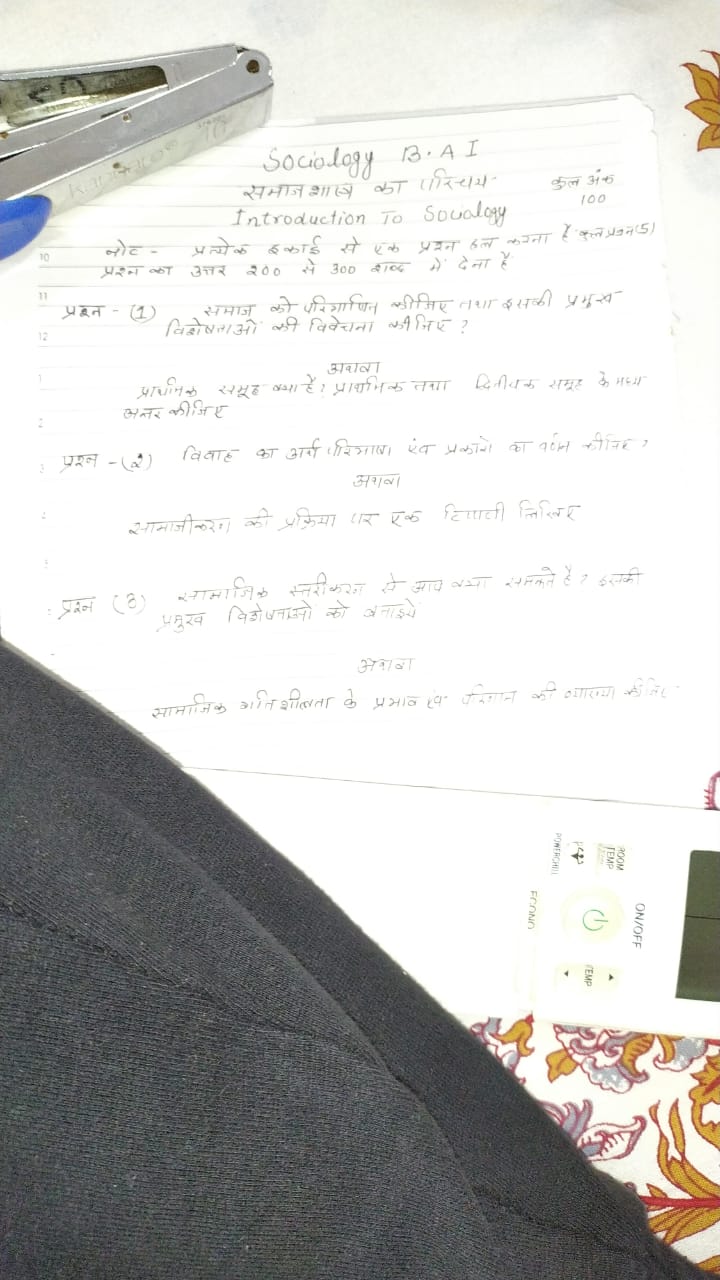 Sociology B.A I
समाजशास्त्र का परिचय
कुल अंक
100
Introduction To Sociology
नोट - प्रत्येक इकाई से एक प्रश्न हल करना है कुल प्रश्न (5)
प्रश्न का उत्तर 200 से 300 शब्द में देना है
प्रश्न - (1) समाज को परिभाषित कीजिए तथा इसकी प्रमुख
विशेषताओं की विवेचना कीजिए ?
अथवा
प्राथमिक समूह क्या है ? प्राथमिक तथा द्वितीयक समूह के मध्य
अन्तर कीजिए
प्रश्न - (2) विवाह का अर्थ परिभाषा एंव प्रकारो का वर्णन कीजिए ?
अथवा
सामाजीकरण की प्रक्रिया पर एक टिप्पणी लिखिए
प्रश्न (3) सामाजिक स्तरीकरण से आप क्या समझते है ? इसकी
प्रमुख विशेषताओं को बताइये
अथवा
सामाजिक गतिशीलता के प्रभाव एंव परिणाम की व्याख्या कीजिए
10
11
12
1
2
3
ROOM
TEMP
POWERCHILL
ON/OFF
TEMP
ECONO